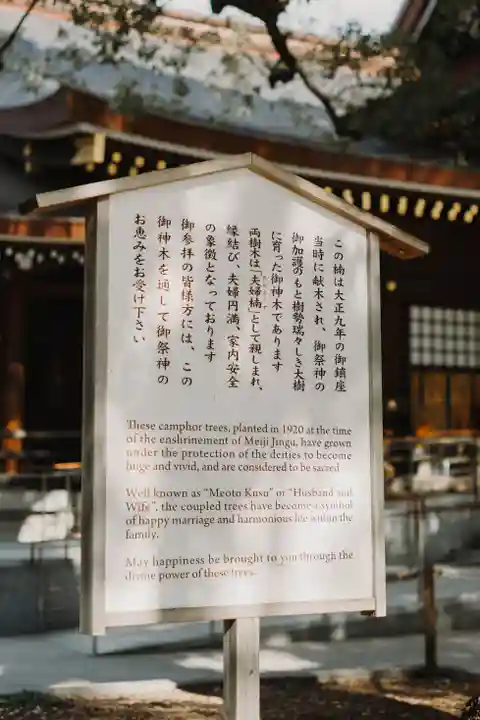 この楠は大正九年の御鎮座
当時に献木され、御祭神の
御加護のもと樹勢瑞々しき大樹
に育った御神木であります
両樹木は「夫婦楠」として親しまれ、
縁結び、夫婦円満、家内安全
の象徴となっております
御参拝の皆様方には、この
御神木を通して御祭神の
お恵みをお受け下さい
These camphor trees, planted in 1920 at the time
of the enshrinement of Meiji Jingu, have grown
under the protection of the deities to become
huge and vivid, and are considered to be sacred
Well known as "Meoto Kusu" or "Husband and
Wife", the coupled trees have become a symbol
of happy marriage and harmonious life within the
family.
May happiness be brought to you through the
divine power of these trees.